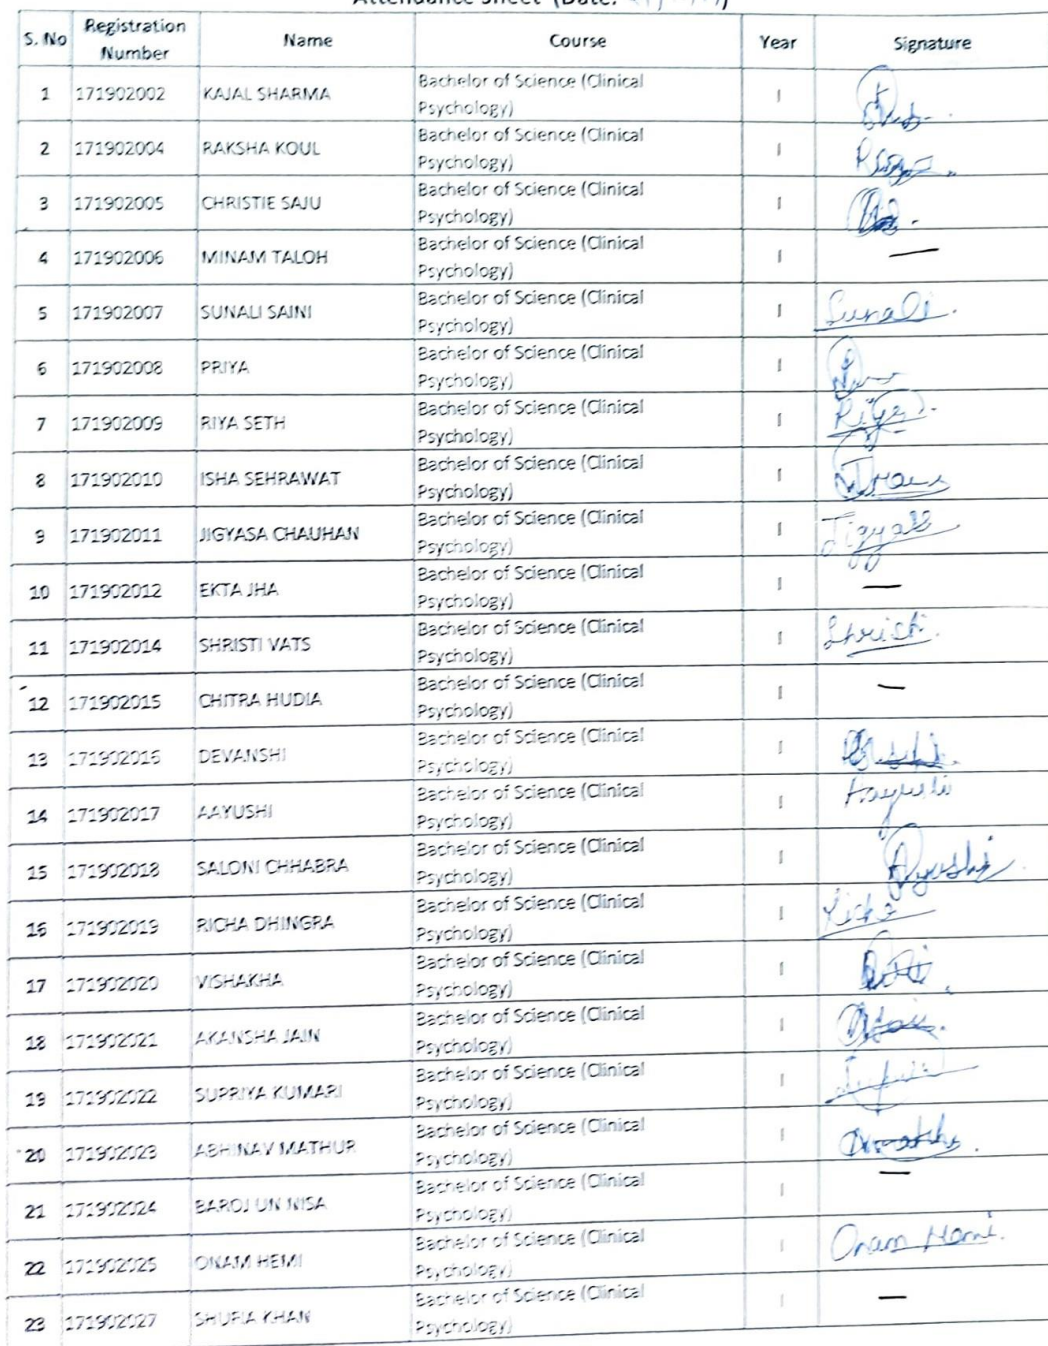 Attendance Sheet (Date:
S. No Registration Number Name Course Year Signature
1 171902002 KAJAL SHARMA Bachelor of Science (Clinical Psychology) I
2 171902004 RAKSHA KOUL Bachelor of Science (Clinical Psychology) I
3 171902005 CHRISTIE SAJU Bachelor of Science (Clinical Psychology) I
4 171902006 MINAM TALOH Bachelor of Science (Clinical Psychology) I —
5 171902007 SUNALI SAINI Bachelor of Science (Clinical Psychology) I Sunali.
6 171902008 PRIYA Bachelor of Science (Clinical Psychology) I
7 171902009 RIYA SETH Bachelor of Science (Clinical Psychology) I Riya
8 171902010 ISHA SEHRAWAT Bachelor of Science (Clinical Psychology) I
9 171902011 JIGYASA CHAUHAN Bachelor of Science (Clinical Psychology) I
10 171902012 EKTA JHA Bachelor of Science (Clinical Psychology) I —
11 171902014 SHRISTI VATS Bachelor of Science (Clinical Psychology) I Shristi.
12 171902015 CHITRA HUDIA Bachelor of Science (Clinical Psychology) I —
13 171902016 DEVANSHI Bachelor of Science (Clinical Psychology) I
14 171902017 AAYUSHI Bachelor of Science (Clinical Psychology) I Aayushi
15 171902018 SALONI CHHABRA Bachelor of Science (Clinical Psychology) I Ayushi
16 171902019 RICHA DHINGRA Bachelor of Science (Clinical Psychology) I Richa
17 171902020 VISHAKHA Bachelor of Science (Clinical Psychology) I
18 171902021 AKANSHA JAIN Bachelor of Science (Clinical Psychology) I
19 171902022 SUPRIYA KUMARI Bachelor of Science (Clinical Psychology) I
20 171902023 ABHINAV MATHUR Bachelor of Science (Clinical Psychology) I
21 171902024 BAROJ UN NISA Bachelor of Science (Clinical Psychology) I —
22 171902025 ONAM HEMI Bachelor of Science (Clinical Psychology) I Onam Hemi.
23 171902027 SHUFIA KHAN Bachelor of Science (Clinical Psychology) I —